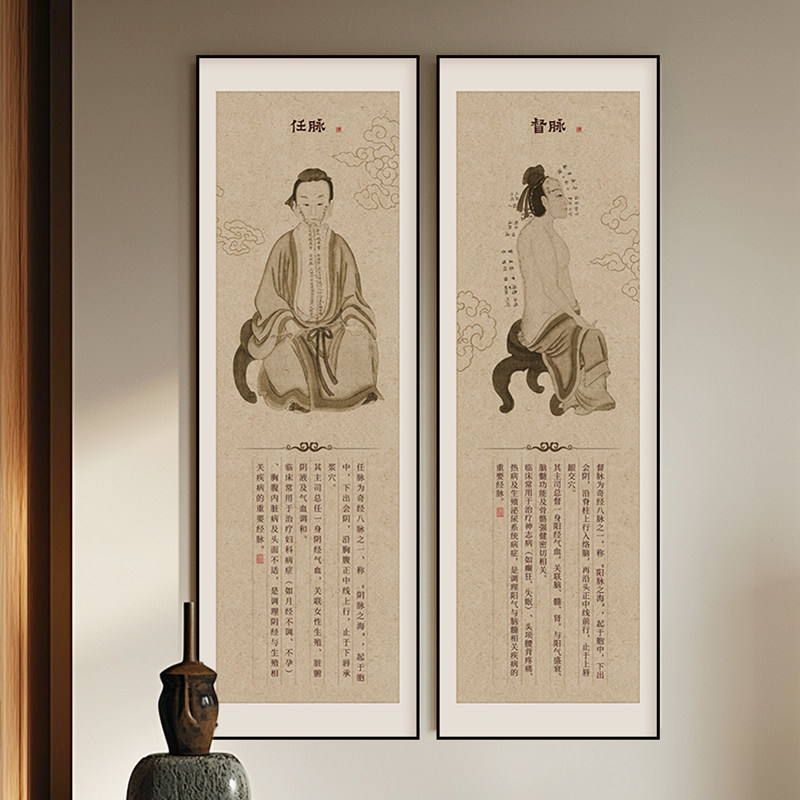 任脉
任脉为奇经八脉之一，称“阴脉之海”，起于胞
中，下出会阴，沿胸腹正中线上行，止于下唇承
浆穴。
其主司总任一身阴经气血，关联女性生殖、脏腑
阴液及气血调和。
临床常用于治疗妇科病症（如月经不调、不孕）
、胸腹内脏病及头面不适，是调理阴经与生殖相
关疾病的重要经脉。
督脉
督脉为奇经八脉之一，称“阳脉之海”，起于胞中，下出
会阴，沿脊柱上行入络脑，再沿头正中线前行，止于上唇
龈交穴。
其主司总督一身阳经气血，关联脑、髓、肾，与阳气盛衰、
脑髓功能及骨骼强健密切相关。
临床常用于治疗神志病（如癫狂、失眠）、头项腰背疼痛、
热病及生殖泌尿系统病症，是调理阳气与脑髓相关疾病的
重要经脉。